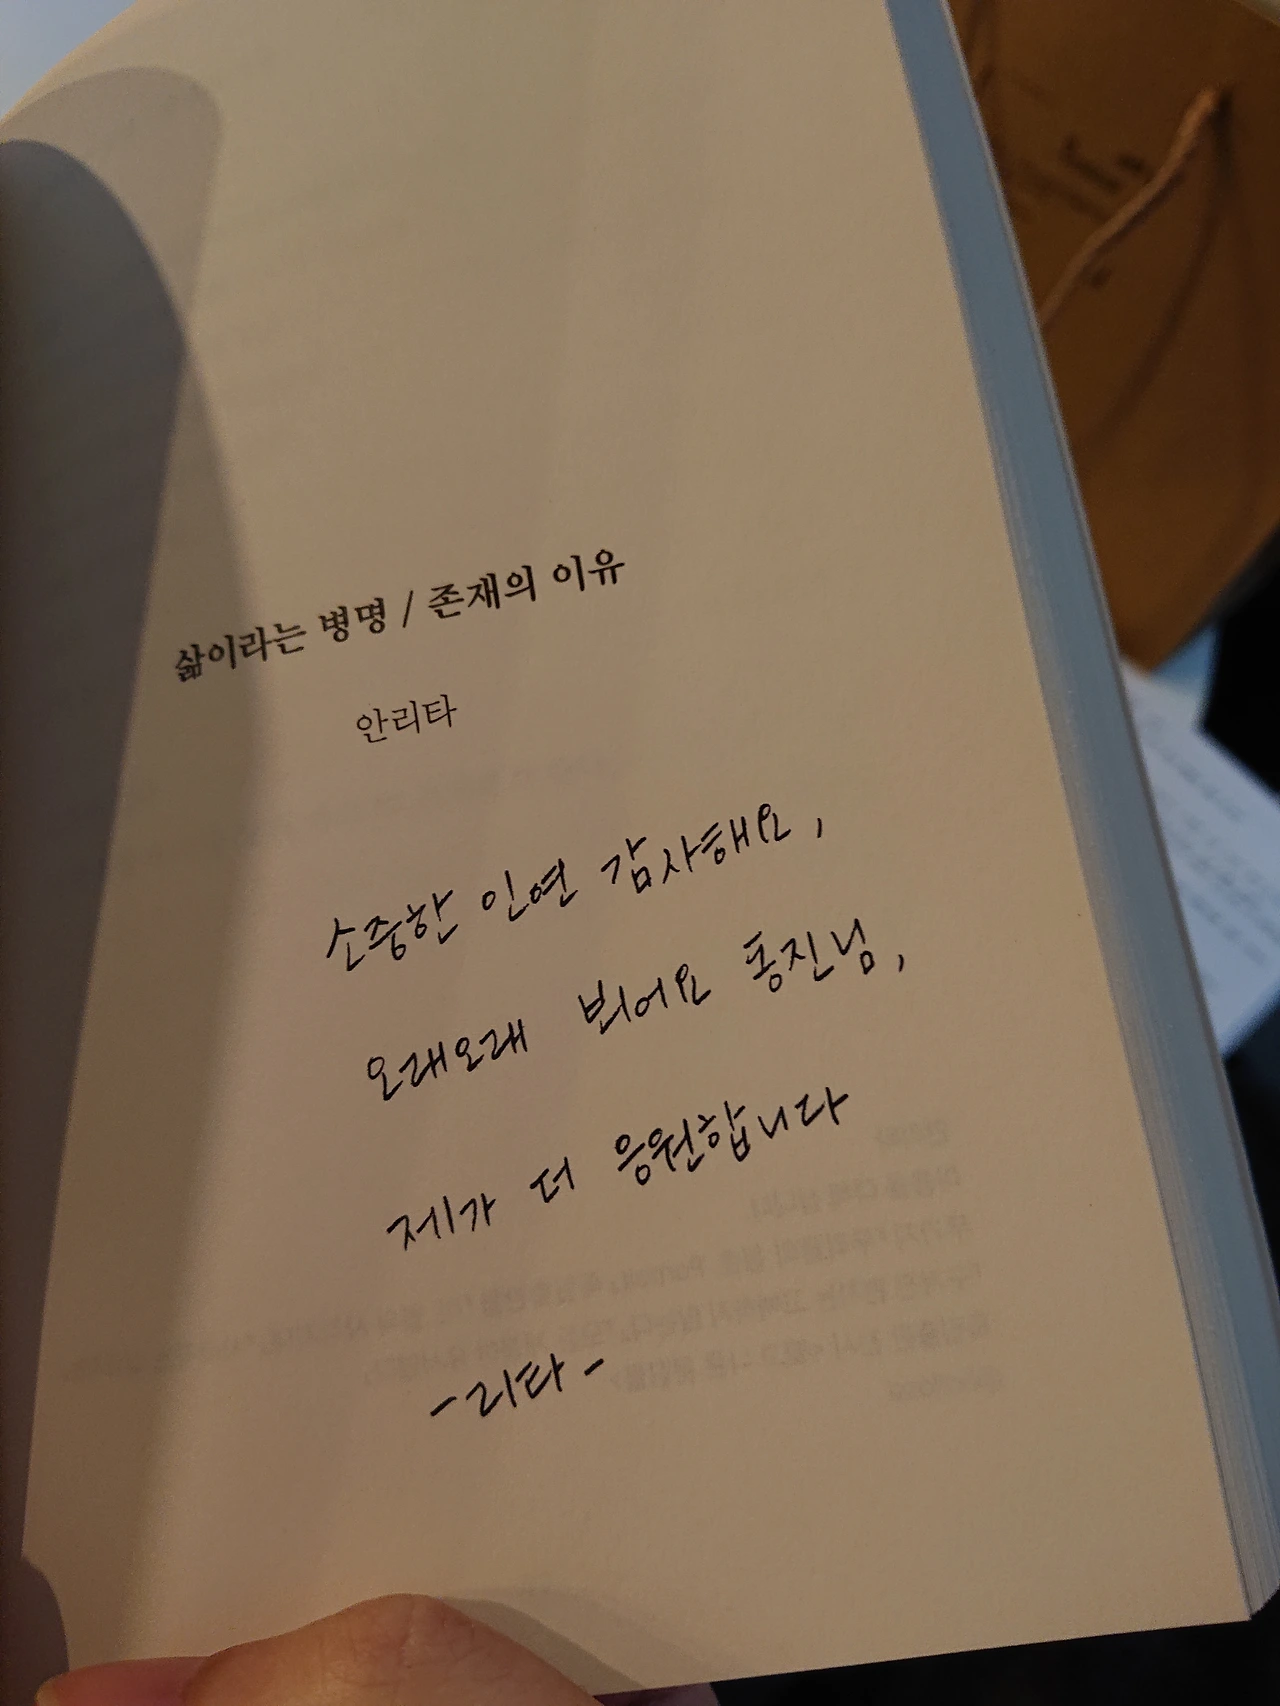 삶이라는 병명 / 존재의 이유
안리타
소중한 인연 감사해요,
오래오래 뵈어요 동진님,
제가 더 응원합니다
-리타-